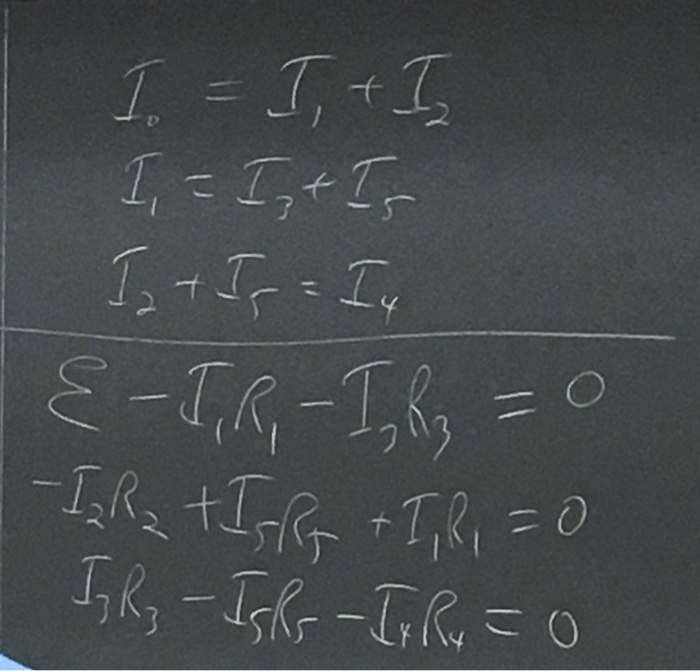 I₀ = I₁ + I₂
I₁ = I₃ + I₅
I₂ + I₅ = I₄
Ɛ - I₁R₁ - I₃R₃ = 0
-I₂R₂ + I₅R₅ + I₁R₁ = 0
I₃R₃ - I₅R₅ - I₄R₄ = 0